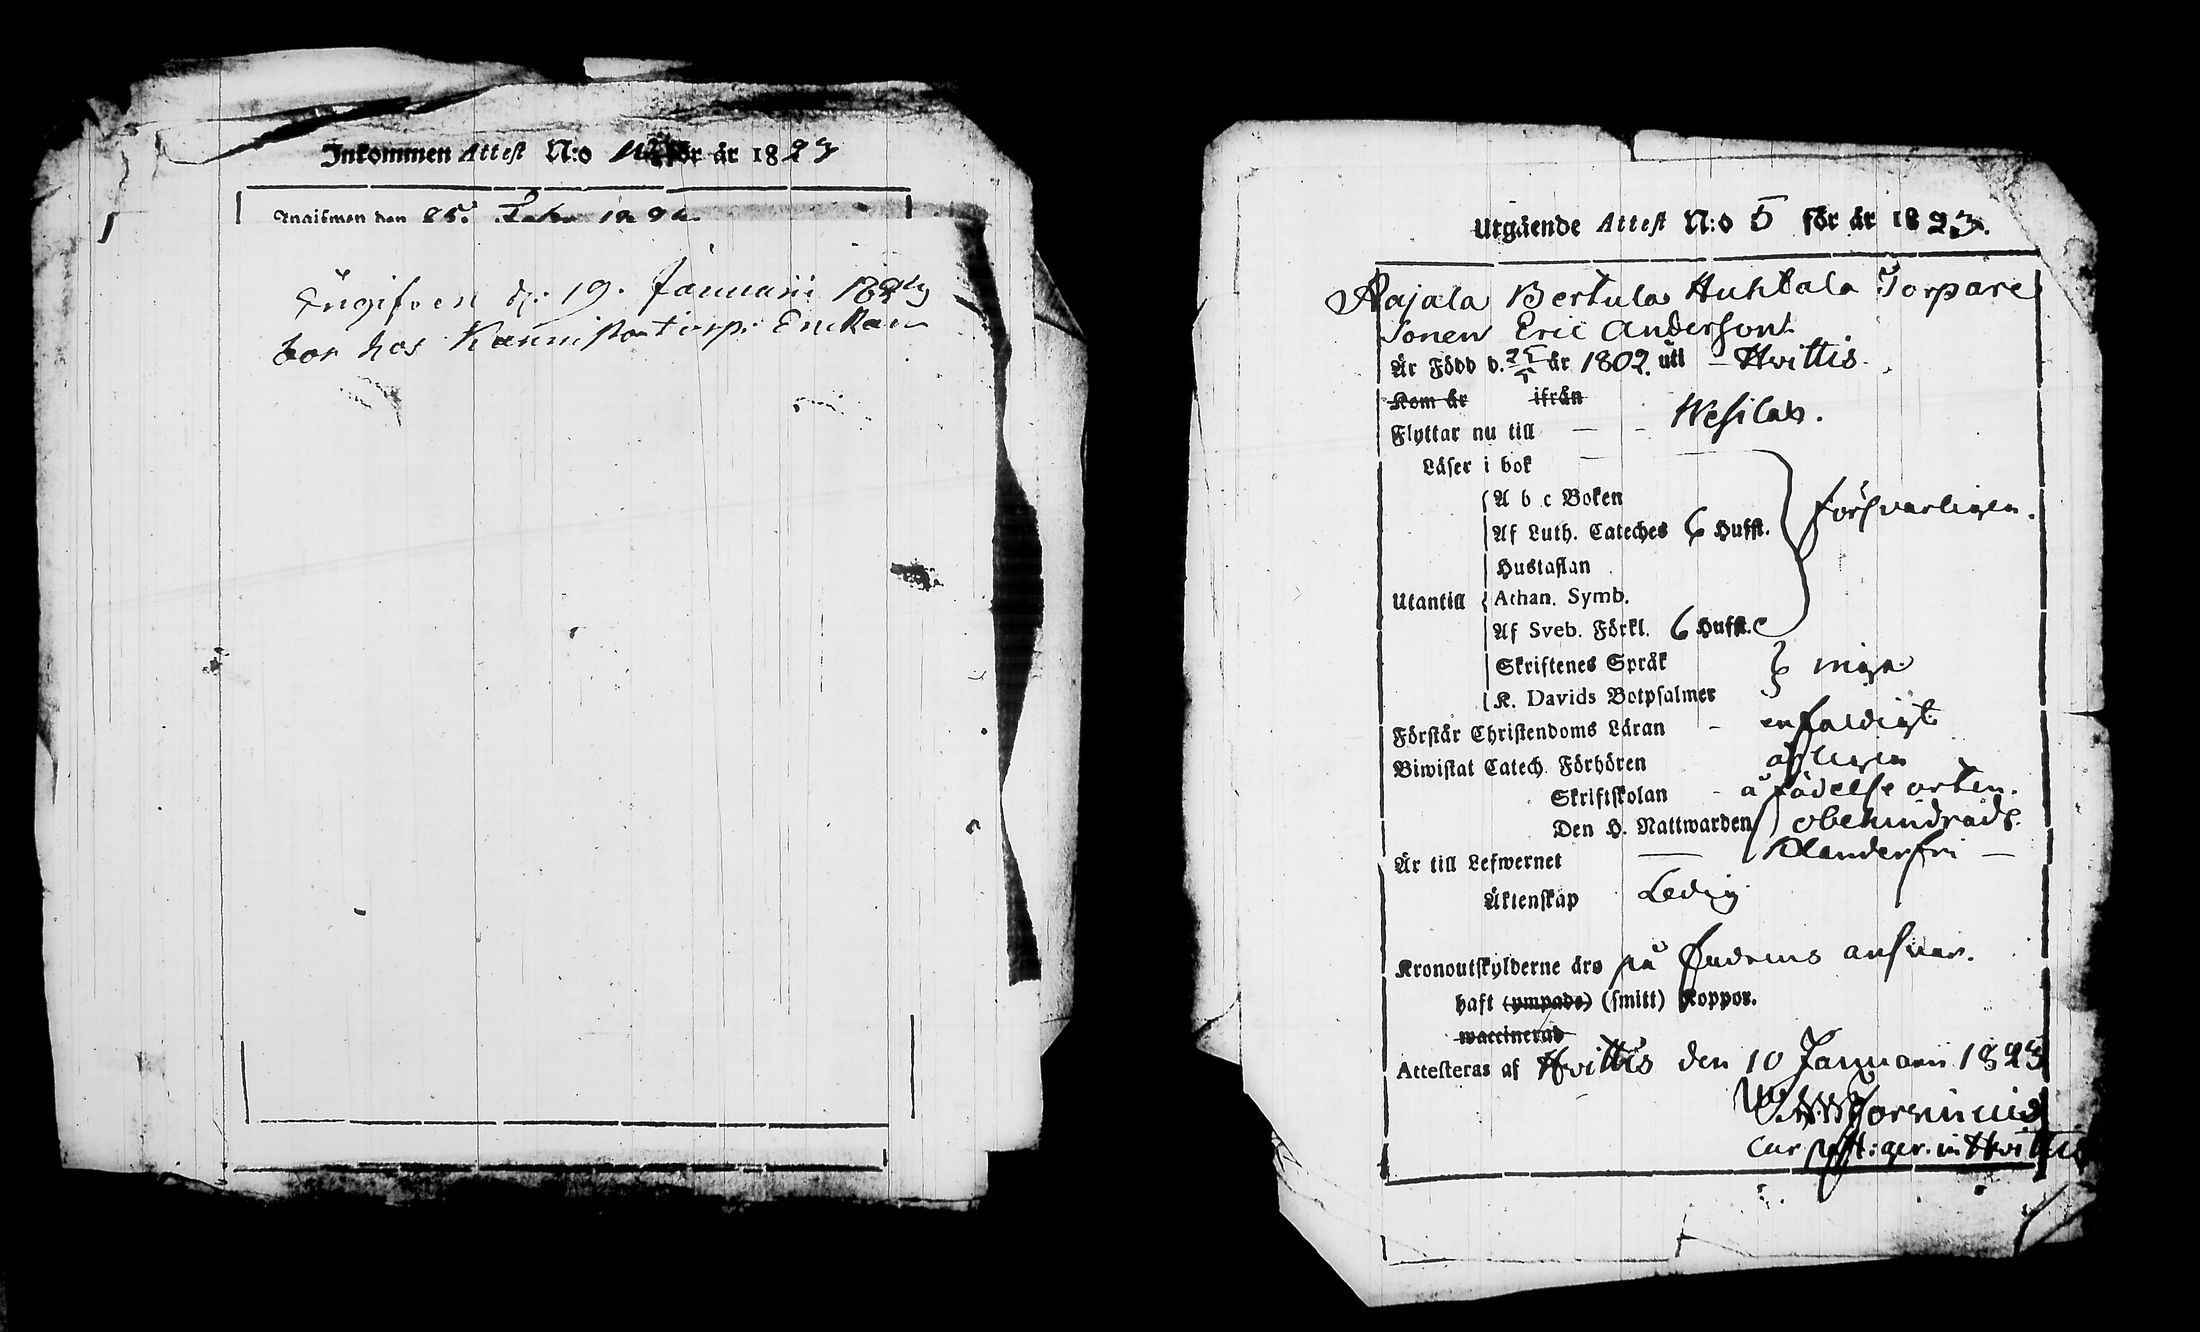 Inkommen Attest N:o för år 1823
Angifwen den 25.
Angifven d: 19. Januarii 1824
bor hos Torp:
Utgående Attest N:o 5 för år 1823.
Rajala Bertula Huhtala Torpare
Sonen Eric Andersson
Är Född d. 25/5 år 1802. uti – Hvittis.
Kom år ifrån
Flyttar nu till — - Wesilax.
Läser i bok
A b c Boken
Af Luth. Cateches 6 Hufst. försvarligen.
Hustaflan
Utantill Athan. Symb.
Af Sveb. Förkl. 6 Hufst.
Skriftenes Språk
K. Davids Botpsalmer
Förstår Christendoms Läran - enfaldigt
Biwistat Catech. Förhören årligen
Skriftskolan - å födelse orten.
Den H. Nattwarden obehindradt.
Är till Lefwernet — Klanderfri —
Äktenskap Ledig
Kronoutskylderne äro på Fadrens answar.
haft (ympade) (smitt) Koppor.
waccinerad
Attesteras af Hvittis den 10 Januarii 1823